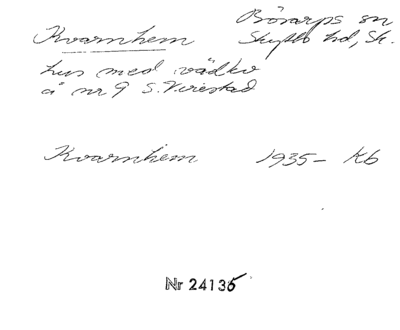 Kvarnhem
Börarps sn
Skytts hd, Sk.
hus med vädkv
å nr 9 S. Virestad
Kvarnhem 1935- Kb
Nr 24135